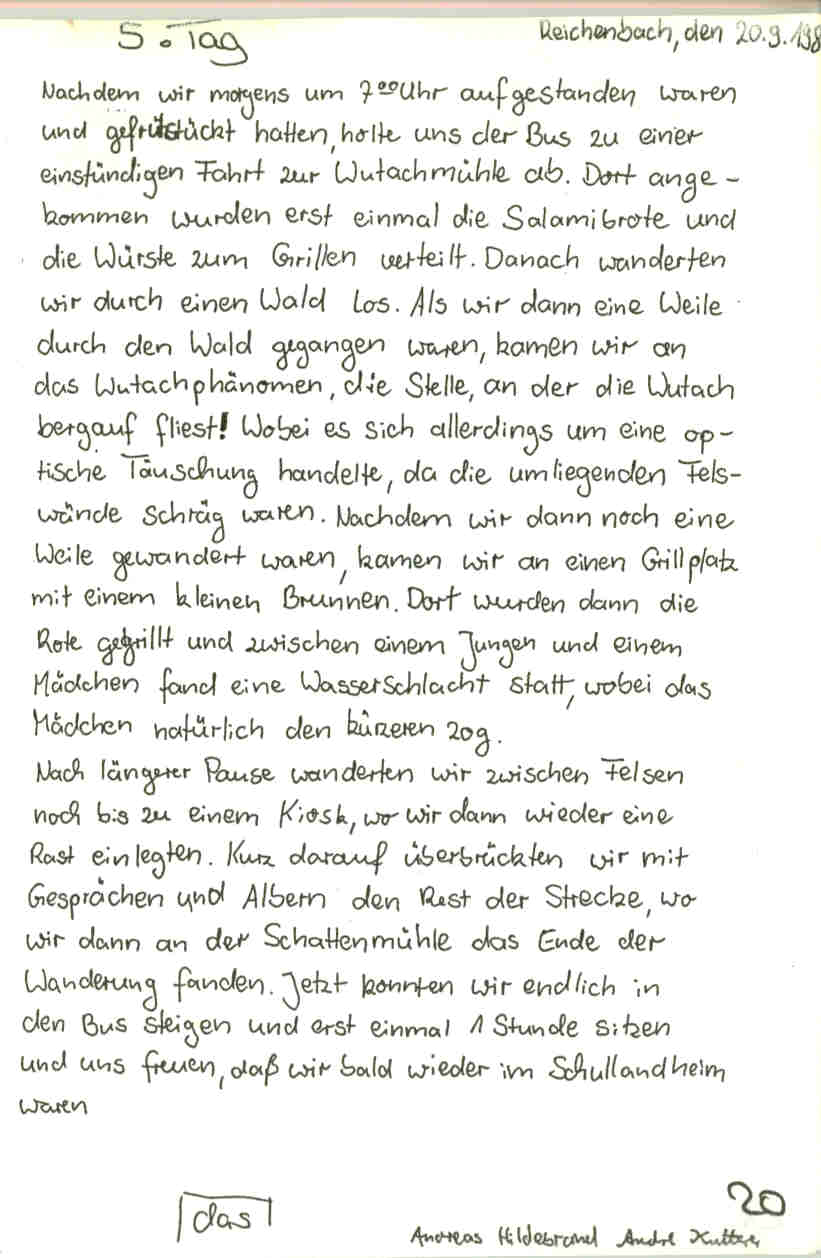 5. Tag
Reichenbach, den 20.9.198
Nachdem wir morgens um 7⁰⁰Uhr aufgestanden waren
und gefrütstückt hatten, holte uns der Bus zu einer
einstündigen Fahrt zur Wutachmühle ab. Dort ange-
kommen wurden erst einmal die Salamibrote und
die Würste zum Grillen verteilt. Danach wanderten
wir durch einen Wald los. Als wir dann eine Weile
durch den Wald gegangen waren, kamen wir an
das Wutachphänomen, die Stelle, an der die Wutach
bergauf fliest! Wobei es sich allerdings um eine op-
tische Täuschung handelte, da die umliegenden Fels-
wände schräg waren. Nachdem wir dann noch eine
Weile gewandert waren, kamen wir an einen Grillplatz
mit einem kleinen Brunnen. Dort wurden dann die
Rote gegrillt und zwischen einem Jungen und einem
Mädchen fand eine Wasserschlacht statt, wobei das
Mädchen natürlich den kürzeren zog.
Nach längerer Pause wanderten wir zwischen Felsen
noch bis zu einem Kiosk, wo wir dann wieder eine
Rast einlegten. Kurz darauf überbrückten wir mit
Gesprächen und Albern den Rest der Strecke, wo
wir dann an der Schattenmühle das Ende der
Wanderung fanden. Jetzt konnten wir endlich in
den Bus steigen und erst einmal 1 Stunde sitzen
und uns freuen, daß wir bald wieder im Schullandheim
waren
das
20
Andreas Hildebrand André Kutterer